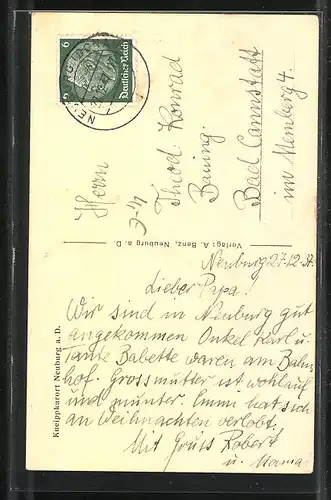 6
Deutsches Reich
Herrn
Thod. Konrad
Bad Cannstatt
im
Verlag: A. Benz, Neuburg a. D.
Kneippkurort Neuburg a. D.
Neuburg 27.12.
Lieber Papa!
Wir sind in Neuburg gut
angekommen Onkel Karl u.
Tante Babette waren am Bahn
hof. Grossmutter ist wohlauf
und munter. Emmi hat sich
an Weihnachten verlobt.
Mit Gruss Robert
u. Mama